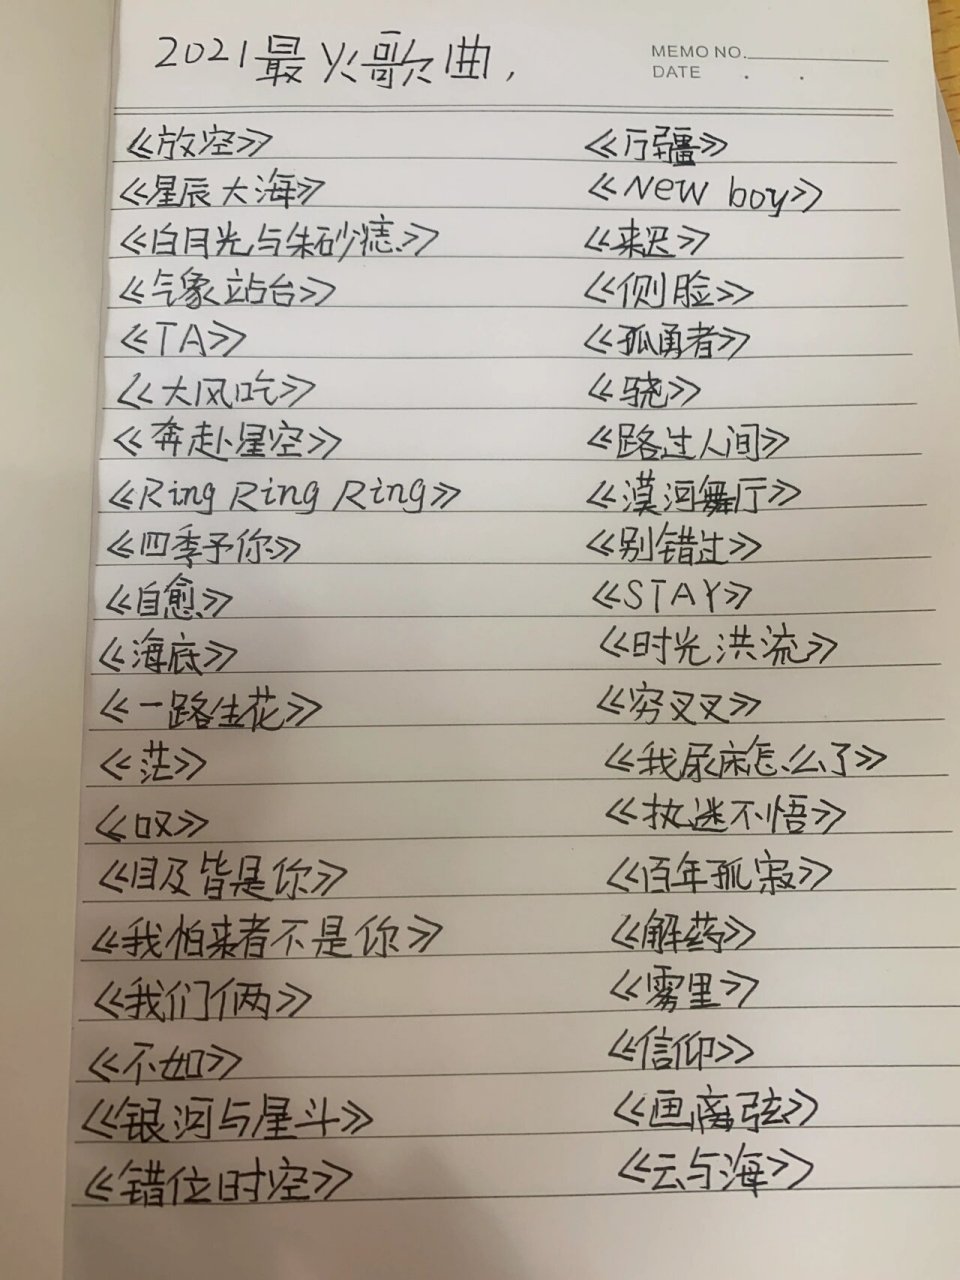 2021最火歌曲,
MEMO NO.
DATE . .
《放空》
《星辰大海》
《白月光与朱砂痣》
《气象站台》
《TA》
《大风吹》
《奔赴星空》
《Ring Ring Ring》
《四季予你》
《自愈》
《海底》
《一路生花》
《茫》
《叹》
《目及皆是你》
《我怕来者不是你》
《我们俩》
《不如》
《银河与星斗》
《错位时空》
《万疆》
《New boy》
《来迟》
《侧脸》
《孤勇者》
《骁》
《路过人间》
《漠河舞厅》
《别错过》
《STAY》
《时光洪流》
《穷叉叉》
《我尿床怎么了》
《执迷不悟》
《百年孤寂》
《解药》
《雾里》
《信仰》
《画离弦》
《云与海》